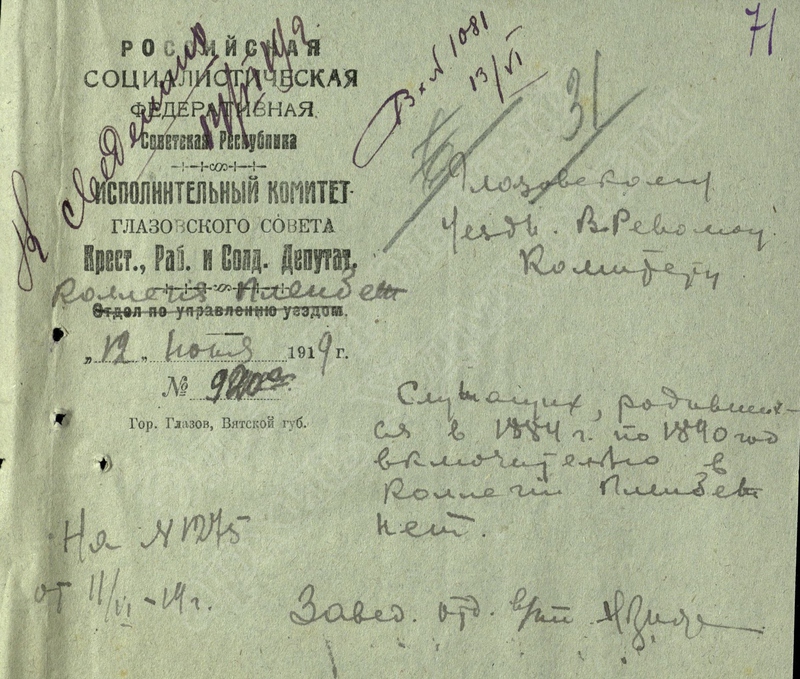 71
Вх № 1081
13/VI
К сведению
31
РОССИЙСКАЯ
СОЦИАЛИСТИЧЕСКАЯ
ФЕДЕРАТИВНАЯ
Советская Республика
ИСПОЛНИТЕЛЬНЫЙ КОМИТЕТ
ГЛАЗОВСКОГО СОВЕТА
Крест., Раб. и Солд. Депутат.
Коллегия Пленбеж
Отдел по управлению уездом.
„12„ июня 1919 г.
№
Гор. Глазов, Вятской губ.
Глазовскому
Уездн. В.Револ.
Комитету
Служащих, родивших-
ся в 1884 г. по 1890 год
включительно в
Коллегии Пленбеж
нет.
На № 1275
от 11/VI - 19 г.
Завед. отд.